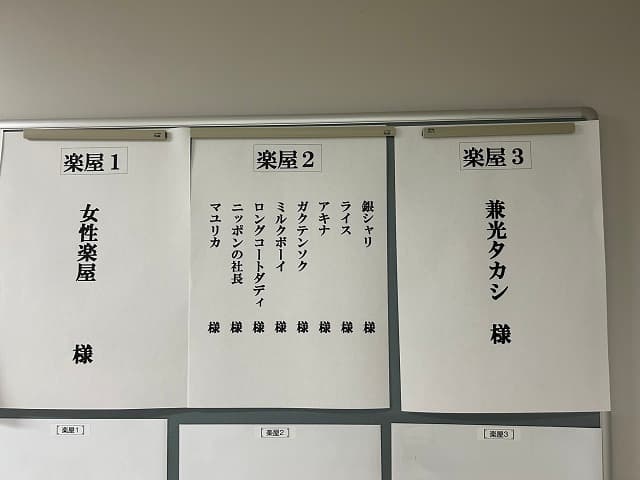 楽屋1
女性楽屋 様
楽屋2
銀シャリ 様
ライス 様
アキナ 様
ガクテンソク 様
ミルクボーイ 様
ロングコートダディ 様
ニッポンの社長 様
マユリカ 様
楽屋3
兼光タカシ 様
[楽屋1]
[楽屋2]
[楽屋3]